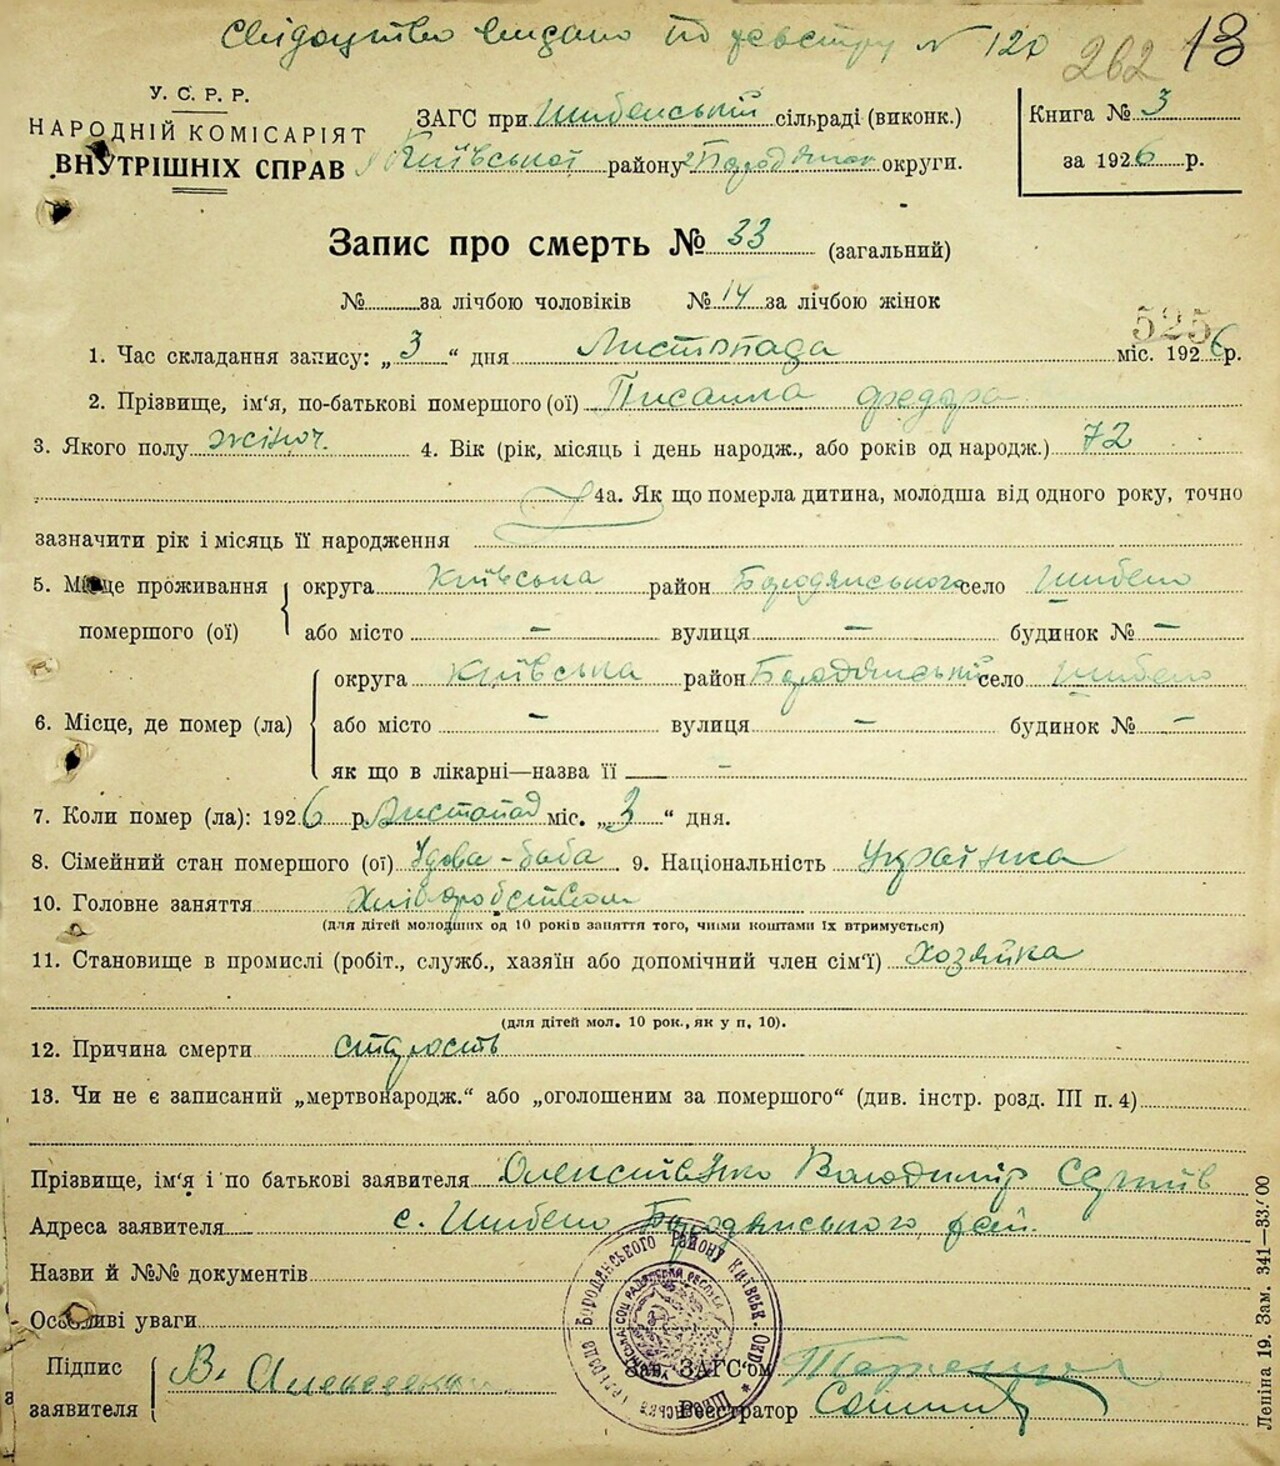 Свідоцтво видано по реєстру № 120
262 13
У. С. Р. Р.
НАРОДНІЙ КОМІСАРІЯТ
ВНУТРІШНІХ СПРАВ
ЗАГС при Шибенській сільраді (виконк.)
Київської району Бородянськ округи.
Книга № 3
за 1926 р.
Запис про смерть № 33 (загальний)
№ за лічбою чоловіків № 14 за лічбою жінок
525
1. Час складання запису: „3“ дня Листопада міс. 1926 р.
2. Прізвище, ім‘я, по-батькові помершого (ої) Федора
3. Якого полу жіноч. 4. Вік (рік, місяць і день народж., або років од народж.) 72
4а. Як що померла дитина, молодша від одного року, точно
зазначити рік і місяць її народження
5. Місце проживання округа Київська район Бородянського село Шибено
помершого (ої) або місто – вулиця – будинок № –
округа Київська район Бородянській село Шибено
6. Місце, де помер (ла) або місто – вулиця – будинок № –
як що в лікарні—назва її –
7. Коли помер (ла): 1926 р. Листопад міс. „3“ дня.
8. Сімейний стан помершого (ої) Удова - баба 9. Національність Українка
10. Головне заняття Хліборобством
(для дітей молодших од 10 років заняття того, чиїми коштами їх втримується)
11. Становище в промислі (робіт., служб., хазяїн або допомічний член сім‘ї) Хозяйка
(для дітей мол. 10 рок., як у п. 10).
12. Причина смерти старость
13. Чи не є записаний „мертвонародж.“ або „оголошеним за помершого“ (див. інстр. розд. III п. 4)
Прізвище, ім‘я і по батькові заявителя Олексієнко Володимір Сергіїв
Адреса заявителя с. Шибено Бородянського рай.
Назви й №№ документів
Особливі уваги
Підпис
заявителя В. Алексеенко
Зав. ЗАГС‘ом
Реєстратор
Бородянського Району Київськ. Окр.
Леніна 19. Зам. 341—33.700